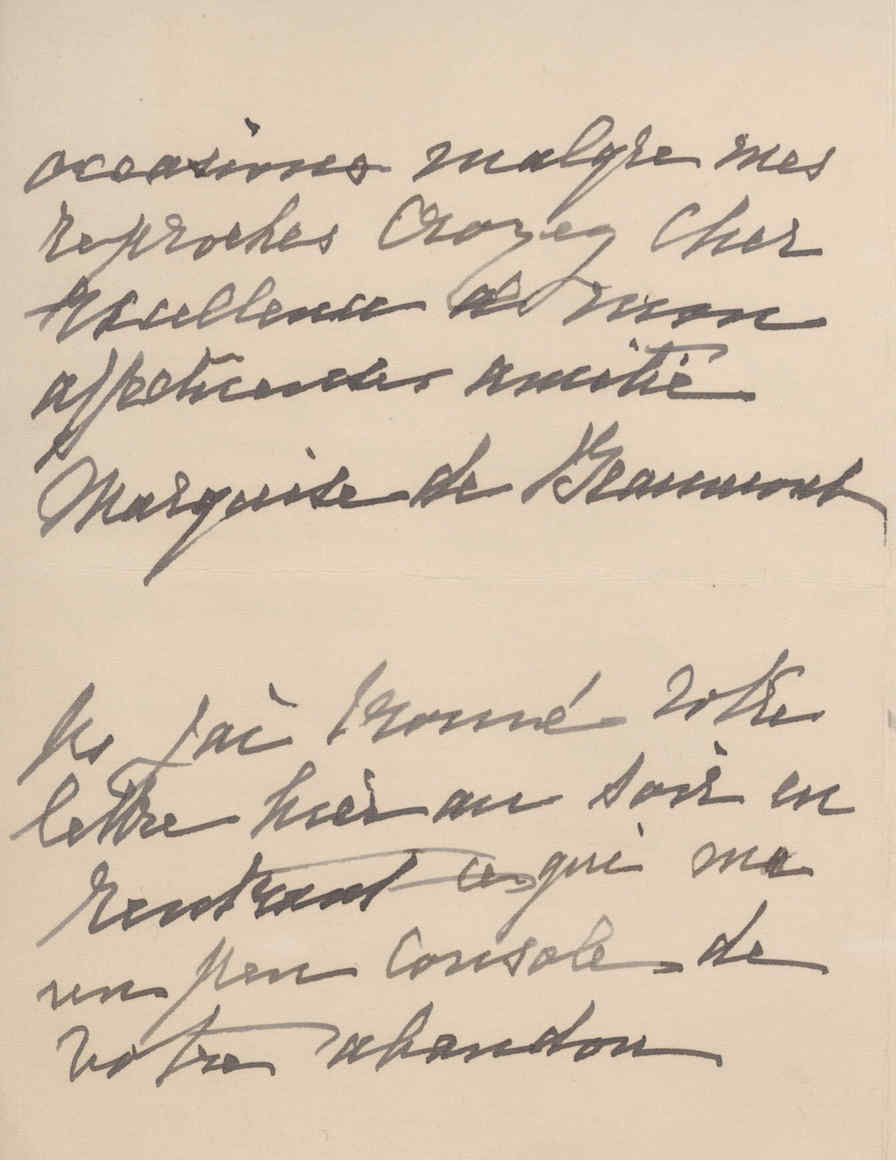 occasions malgre mes
reproches Croyez Cher
Excellence à mon
affectueuse amitié
Marquise de Beaumont
Ps J'ai trouvé votre
lettre hier au soir en
rentrant ce qui ma
un peu console de
votre abandon